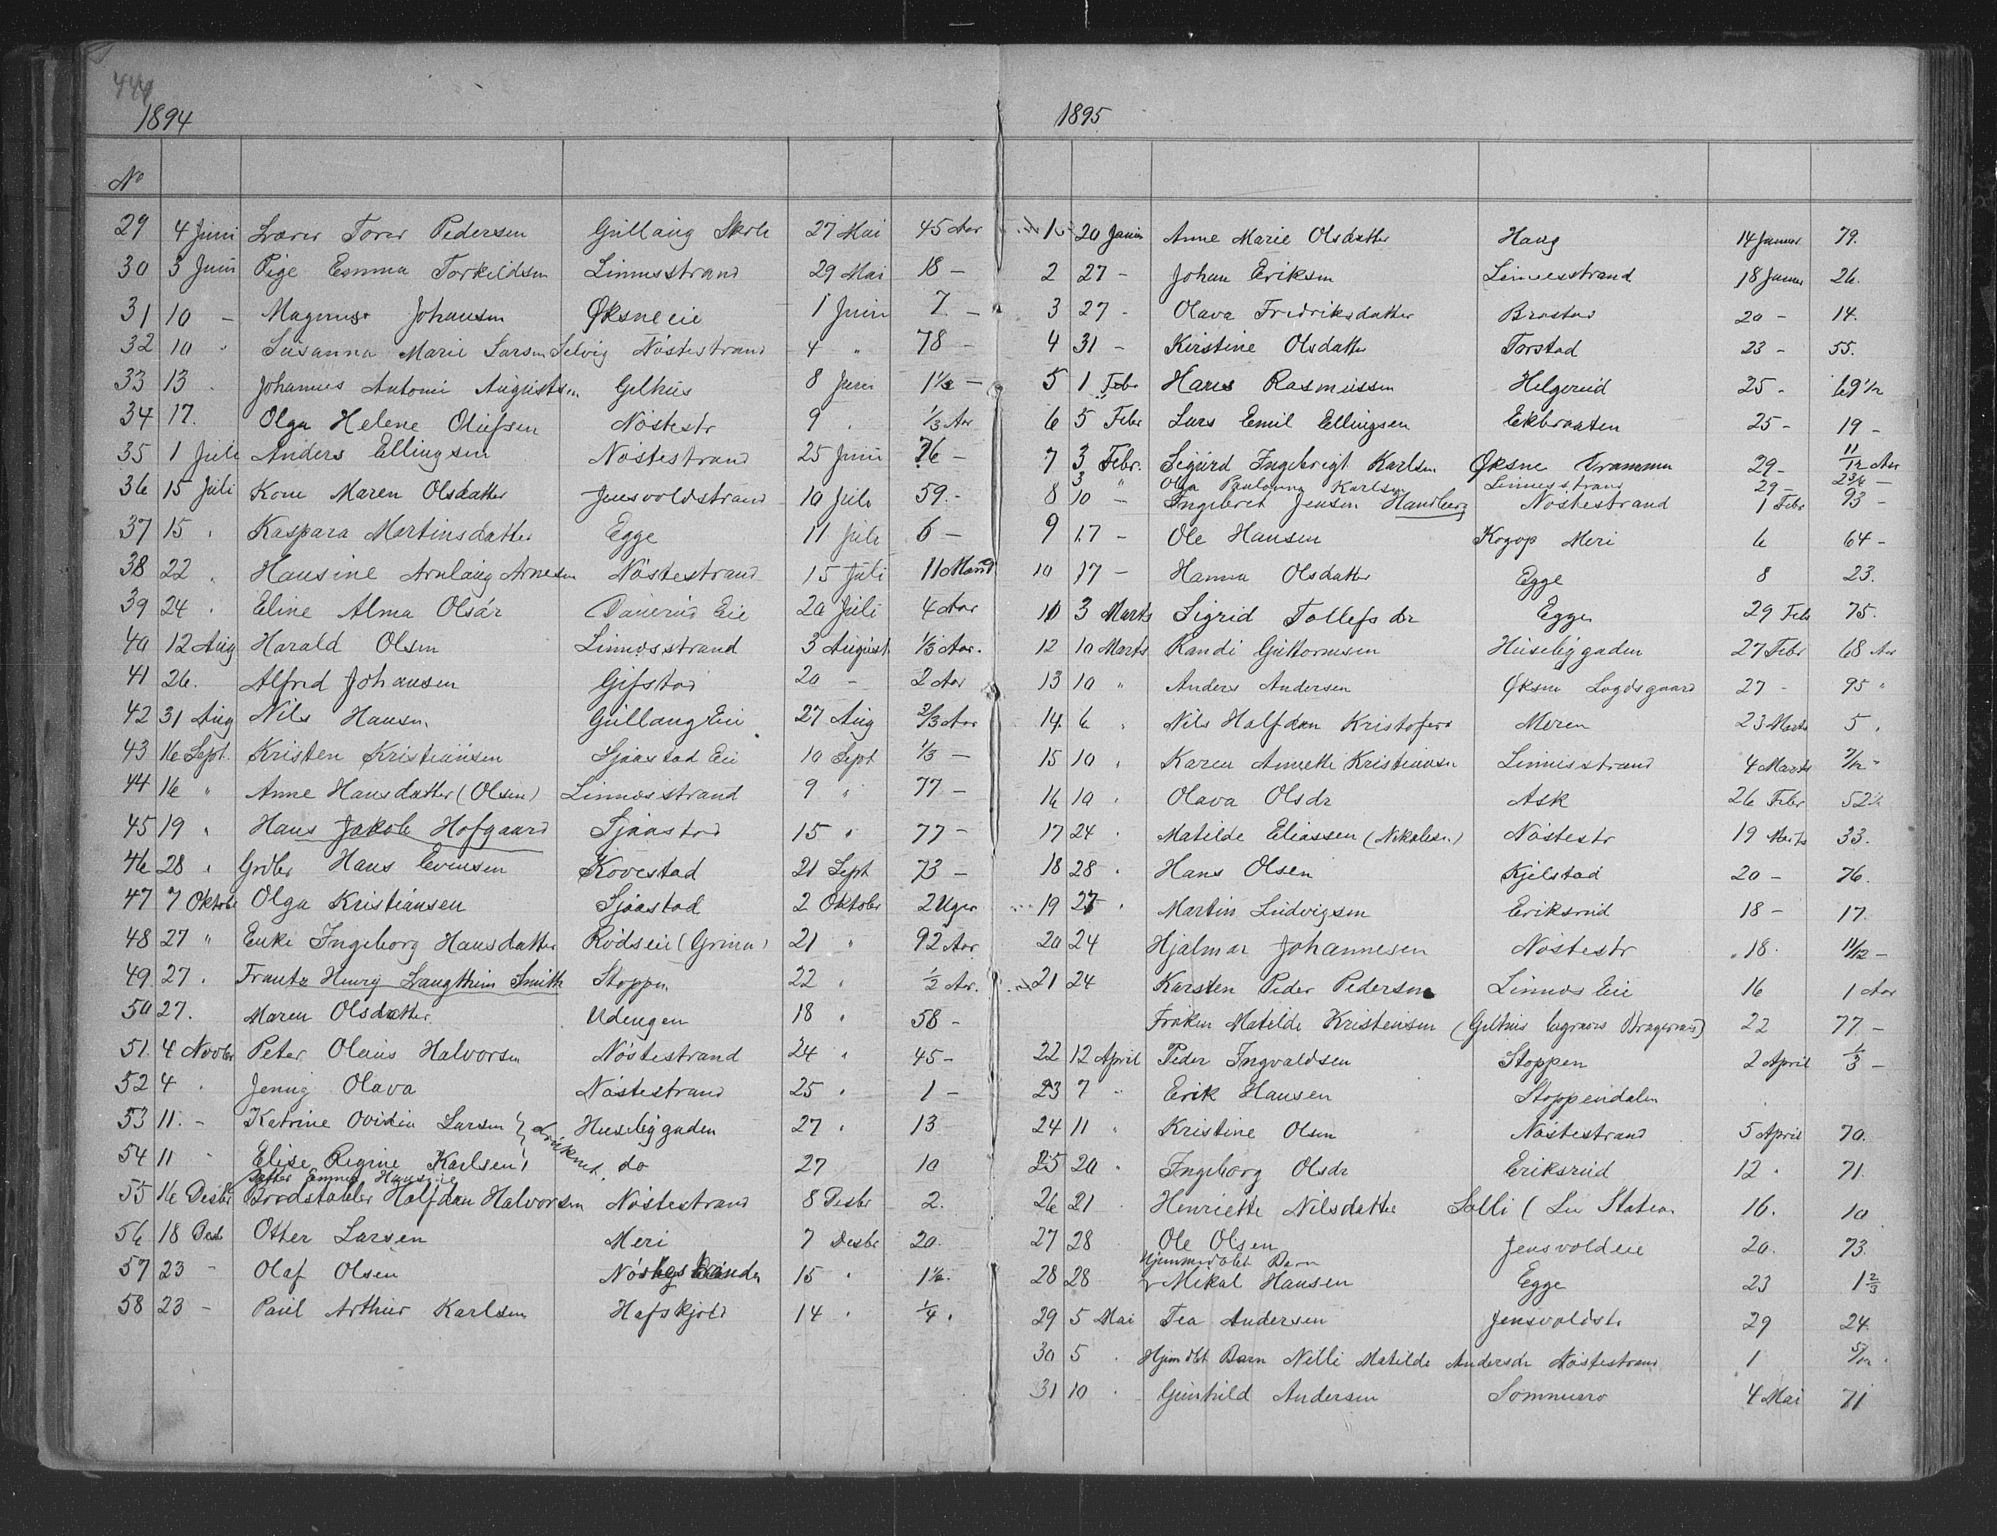 440
1894
No
29 4 Juni Lærer Torer Pedersen Gullaug Skole 27 Mai 45 Aar
30 3 Juni Pige Emma Torkildsen Linnesstrand 29 Mai 18 —
31 10 — Magnus Johansen Øksne eie 1 Juni 7. —
32 10 " Susanna Marie Larsen Selvig Nöstestrand 4 " 78 —
33 13 . Johannes Antoni Augustsen Gilhus 8 Juni 1½ —
34 17. Olga Helene Olufsen Nöstestr 9 . ⅓ Aar
35 1 Juli Anders Ellingsen Nöstestrand 25 Juni 76 —
36 15 Juli Kone Maren Olsdatter Jensvoldstrand 10 Juli 59. -
37 15 . Kaspara Martinsdatter Egge 11 Juli 6 —
38 22 . Hansine Arnlaug Arnesen Nöstestrand 15 Juli 11 Maand
39 24 . Eline Alma Olsdr Dauerud Eie 20 Juli 4 Aar
40 12 Aug Harald Olsen Linnesstrand 3 August ⅓ Aar.
41 26. Alfred Johansen Gifstad 20 - 2 Aar
42 31 Aug Nils Hansen Gullaug Eie 27 Aug ⅔ Aar
43 16 Sept. Kristen Kristiansen Sjaastad Eie 10 Sept ⅓ —
44 16 " Anne Hansdatter (Olsen) Linnesstrand 9 " 77 —
45 19 . Hans Jakob Hofgaard Sjaastad 15 . 77 —
46 28 . Grdbr Hans Evensen Kovestad 21 Sept 73 —
47 7 Oktobr Olga Kristiansen Sjaastad 2 Oktobr 2 Uger
48 27 " Enke Ingeborg Hansdatter Rödseie (Grina) 21 " 92 Aar
49 27 . Frantz Henry Langthim Smith Stoppen 22 . ½ Aar.
50 27. Maren Olsdatter Udengen 18 . 58 -
51. 4 Novbr Peter Olaus Halvorsen Nöstestrand 24 . 45 -
52 4 . Jenny Olava Nöstestrand 25 . 1 —
53 11. - Katrine Ovidia Larsen } druknet Husebygaden 27 . 13
54 11 " Elise Regine Karlsen } do 27 10
Datter Emma Hansine
55 16 Desbr Brodstabler Halfdan Halvorsen Nöstestrand 8 Desbr 2.
56 18 Desb Otter Larsen Meri 7 Desbr 20.
57 23 - Olaf Olsen 15 . 1½.
58 23 - Paul Arthur Karlsen Hafskjold 14 . ¼ .
1895
1 20 Januar Anne Marie Olsdatter Haug 14 Januar 79.
2 27 - Johan Eriksen Linnesstrand 18 Januar 26.
3 27 - Olava Fredriksdatter Brastad 20 - 14.
4 31 - Kirstine Olsdatter Torstad 23 - 55.
5 1 Febr Hans Rasmussen Helgerud 25 - 69½
6 5 Febr Lars Emil Ellingsen Ekbraaten 25 - 19 -
7 3 Febr. Sigurd Ingebrigt Karlsen Øksne Drammen 29 - 11/12 Aar
3 " Olga Paulanna Karlsen Linnesstrand 29 - 2¾ —
8 10 — Ingebret Jensen Handberg Nöstestrand 1 Febr 93 -
9 17 — Ole Hansen Kogop Meri 6 64 -
10 17 — Hanna Olsdatter Egge 8 23.
11 3 Marts Sigrid Tollefsdr Egge 29 Feb 75.
12 10 Marts Randi Guttormsen Husebygaden 27 Febr 68 Aar
13 10 " Anders Andersen Øksne Lagdsgaard 27 - 95 "
14 6 . Nils Halfdan Kristofers Meren 23 Marts 5 .
15 10 . Karen Annette Kristiansen Linnesstrand 4 Marts 7/12 "
16 10 . Olava Olsdr Ask 26 Febr 52½
17 24 . Matilde Eliassen (Nikolisen) Nöstestr 19 Marts 33.
18 28 . Hans Olsen Kjelstad 20 - 76.
19 27 . Martin Ludvigsen Eriksrud 18 - 17.
20 24 Hjalmar Johannesen Nöstestr 18. 11/12 -
21 24 Karsten Peder Pedersen Linnes Eie 16 1 Aar
Fröken Matilde Kristensen (Gilhus begraves Bragernæs) 22 77 -
22 12 April Peder Ingvaldsen Stoppen 2 April ⅓ -
23 7 - Erik Hansen Stoppendalen
24 11 . Kristine Olsen Nöstestrand 5 April 70.
25 20 . Ingeborg Olsdr Eriksrud 12 . 71.
26 21 . Henriette Nilsdatter Solli (Lier Station 16. 10
27 28 Ole Olsen Jensvoldeie 20. 73.
Hjemmedöbt Barn
28 28 Mikal Hansen Egge 23 1⅔
29 5 Mai Tea Andersen Jensvoldstr 29 24.
30 5 . Hjemdbt Barn Nilli Matilde Andersdr Nöstestrand 1 5/12.
31 10 . Gunhild Andersen Sommerro 4 Mai 71